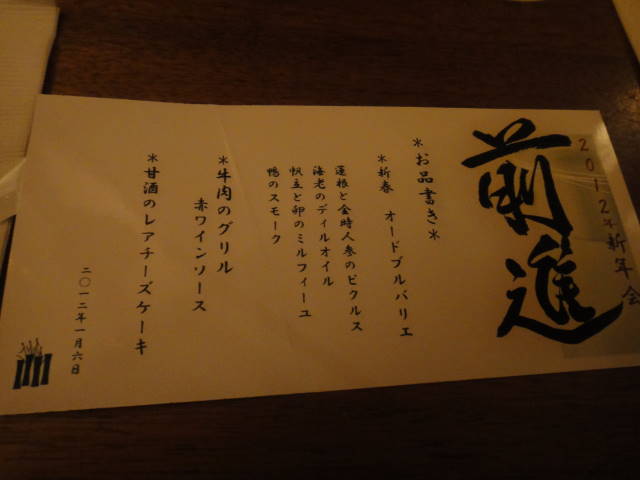 2012年新年会
前進
＊お品書き＊
＊新春　オードブルバリエ
蓮根と金時人参のピクルス
海老のディルオイル
帆立と卯のミルフィーユ
鴨のスモーク
＊牛肉のグリル
赤ワインソース
＊甘酒のレアチーズケーキ
二〇一二年一月六日